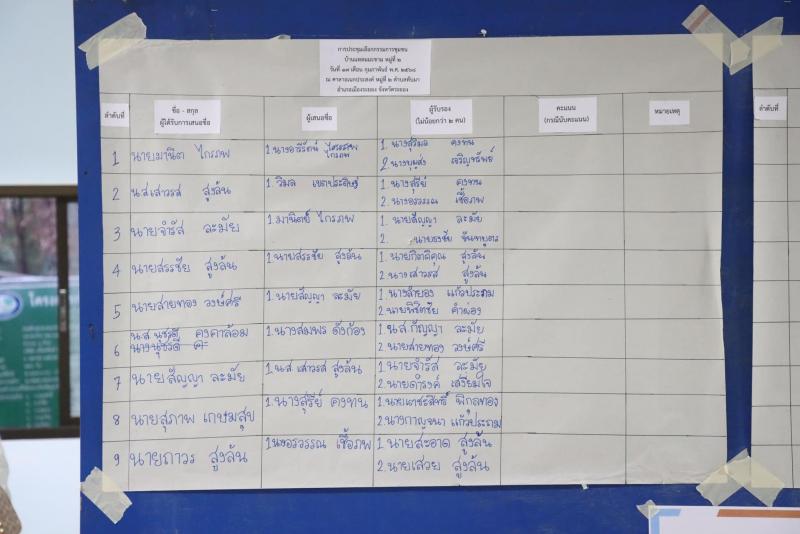 การประชุมเลือกกรรมการชุมชน
บ้านแหลมมะขาม หมู่ที่ ๒
วันที่ ๑๓ เดือน กุมภาพันธ์ พ.ศ. ๒๕๖๘
ณ ศาลาอเนกประสงค์ หมู่ที่ ๒ ตำบลทับมา
อำเภอเมืองระยอง จังหวัดระยอง
ลำดับที่ ชื่อ - สกุล ผู้ได้รับการเสนอชื่อ ผู้เสนอชื่อ ผู้รับรอง (ไม่น้อยกว่า ๒ คน) คะแนน (กรณีนับคะแนน) หมายเหตุ ลำดับที่
1 นายมานิต ไกรภพ 1.นางอารีรัตน์ ไกรภพ 1. นางสุวิมล คงทน
ไกรภพ 2. เจริญทรัพย์
2 น.ส.เสาวรส สูงล้น 1. วิมล เขตประดิษฐ์ 1. นางสุรีย์ คงทน
2. นางอรวรรณ เชื้อภพ
3 นายจำรัส ละมัย 1.มานิตย์ ไกรภพ 1. นายสัญญา ละมัย
2. นายธงชัย จันทบุตร
4 นายสรรชัย สูงล้น 1.นายสรรชัย สูงล้น 1. นายกิตติคุณ สูงล้น
2. นางเสาวรส สูงล้น
5 นายสายทอง วงษ์ศรี 1.นายสัญญา ละมัย 1.นางลำยอง แก้วประถม
2.นายพิชิตชัย คำผ่อง
น.ส.นุชรดี คงคาล้อม 1.นางสมพร ดังก้อง 1. น.ส กัญญา ละมัย
6 นางนุชรดี ค 2.นายสายทอง วงษ์ศรี
7 นายสัญญา ละมัย 1.น.ส เสาวรส สูงล้น 1.นายจำรัส ละมัย
2.นายดำรงค์ เสงี่ยมใจ
8 นายสุภาพ เกษมสุข 1.นางสุรีย์ คงทน 1.นายเดชะสิทธิ์ พิกุลทอง
2.นางกาญจนา แก้วประถม
9 นายถาวร สูงล้น 1.นางอรวรรณ เชื้อภพ 1 นายสะอาด สูงล้น
2. นายเสวย สูงล้น